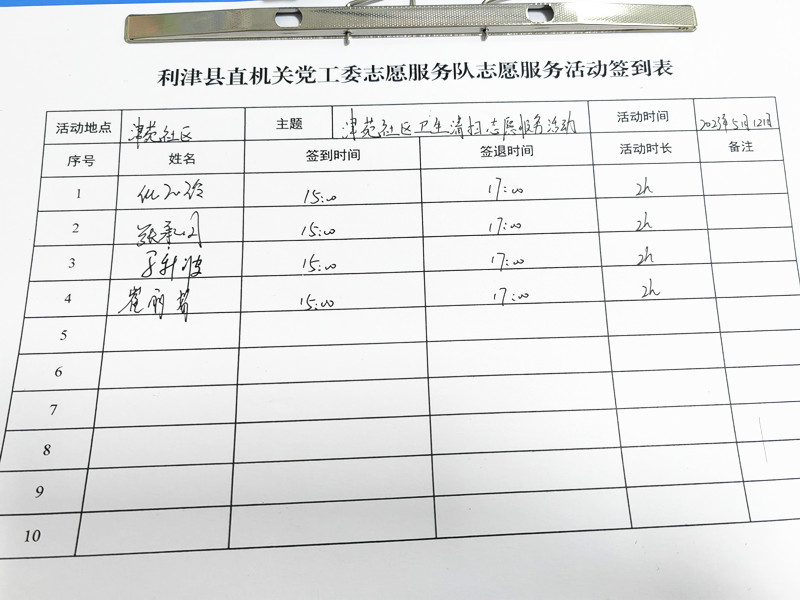 利津县直机关党工委志愿服务队志愿服务活动签到表
活动地点 津苑社区 主题 津苑社区卫生清扫志愿服务活动 活动时间 2023年5月12日
序号 姓名 签到时间 签退时间 活动时长 备注
1 15:00 17:00 2h
2 15:00 17:00 2h
3 15:00 17:00 2h
4 崔丽 15:00 17:00 2h
5
6
7
8
9
10